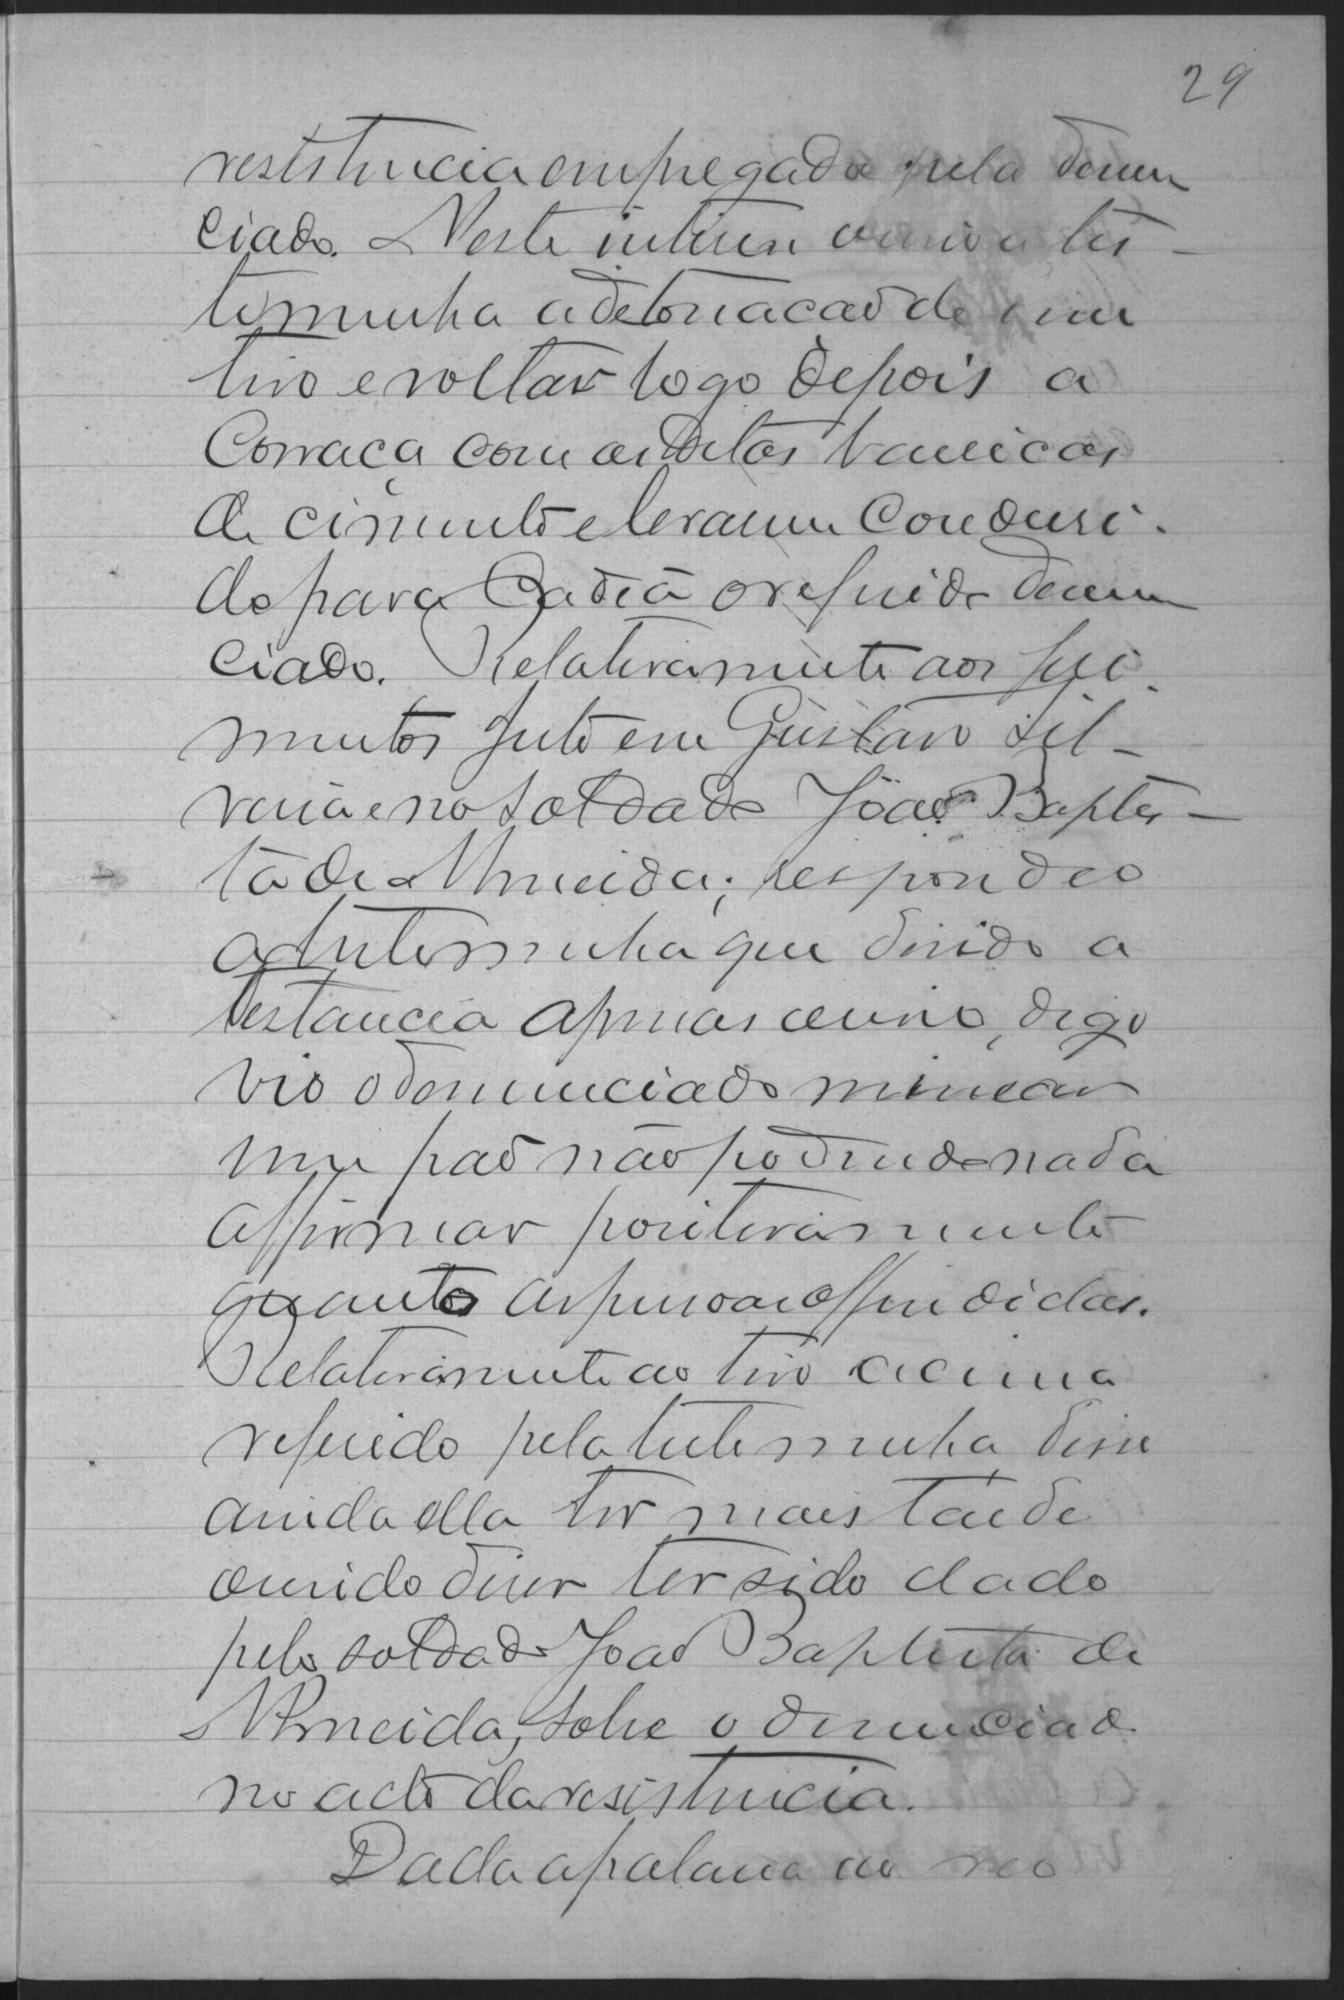 29
resistencia empregada pela denun
ciado. Neste interim ouvio a tes-
temunha a detonacaõ de um
tiro e voltar logo depois a
Corraça com as ditas
de cimento e levarem condusi-
do para Cadeia o referido denun
ciado. Relativamente aos feri-
mentos feito em Gustavo Sil-
veira e no soldado Joaõ Baptis-
ta de Almeida; respondeo
a testemunha que devido a
destancia apenas ouvio, digo
vio o denunciado manear
um paõ não podendo nada
affirmar positivamente
quanto as pessoas offendidas.
Relativamente ao tiro acima
referido pela testemunha disse
ainda ella ter mais tarde
ouvido diser ter sido dado
pelo soldado Joaõ Baptista de
Almeida, sobre o denunciado
no acto da resistencia.
Dada a palavra ao reo